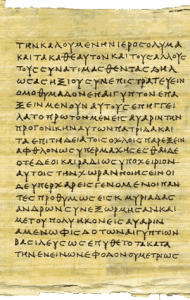 ΤΗΝΚΑΛΟΥΜΕΝΗΝΙΕΡΟΣΟΛΥΜΑ
ΚΑΙΤΑΚΑΘΕΑΥΤΟΝΚΑΙΤΟΥΣΑΛΛΟΥΣ
ΤΟΥΣΣΥΝΑΤΙΜΑΣΘΕΝΤΑΣΔΗΛ
ΩΣΑΣΗΞΙΟΥΣΥΝΕΠΙΣΤΡΑΤΕΥΕΙΝ
ΟΜΟΘΥΜΑΔΟΝΕΠΑΙΓΥΠΤΟΝΕΠΑ
ΞΕΙΝΜΕΝΟΥΝΑΥΤΟΥΣΕΠΗΓΓΕΙ
ΛΑΤΟΠΡΩΤΟΝΜΕΝΕΙΣΑΥΑΡΙΝΤΗΝ
ΠΡΟΓΟΝΙΚΗΝΑΥΤΩΝΠΑΤΡΙΔΑΚΑΙ
ΤΑΕΠΙΤΗΔΕΙΑΤΟΙΣΟΧΛΟΙΣΠΑΡΕΞΕΙΝ
ΑΦΘΟΝΩΣΥΠΕΡΜΑΧΗΣΕΣΘΑΙΔΕ
ΟΤΕΔΕΟΙΚΑΙΡΑΔΙΩΣΥΠΟΧΕΙΡΙΟΝ
ΑΥΤΟΙΣΤΗΝΧΩΡΑΝΠΟΙΗΣΕΙΝΟΙ
ΔΕΥΠΕΡΧΑΡΕΙΣΓΕΝΟΜΕΝΟΙΠΑΝ
ΤΕΣΠΡΟΘΥΜΩΣΕΙΣΚΜΥΡΙΑΔΑΣ
ΑΝΔΡΩΝΣΥΝΕΞΩΡΜΗΣΑΝΚΑΙ
ΜΕΤΟΥΠΟΛΥΗΚΟΝΕΙΣΑΥΑΡΙΝ
ΑΜΕΝΩΦΙΣΔΟΤΩΝΑΙΓΥΠΤΙΩΝ
ΒΑΣΙΛΕΥΣΩΣΕΠΥΘΕΤΟΤΑΚΑΤΑ
ΤΗΝΕΚΕΙΝΩΝΕΦΟΔΟΝΟΥΜΕΤΡΙΩΣ